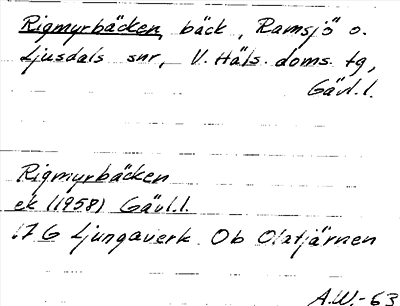 Rigmyrbäcken, bäck, Ramsjö o.
Ljusdals snr, V. Häls. doms. tg,
Gävl.l.
Rigmyrbäcken
ek (1958) Gävl.l.
17 G Ljungaverk Ob Olatjärnen
A.W.-63